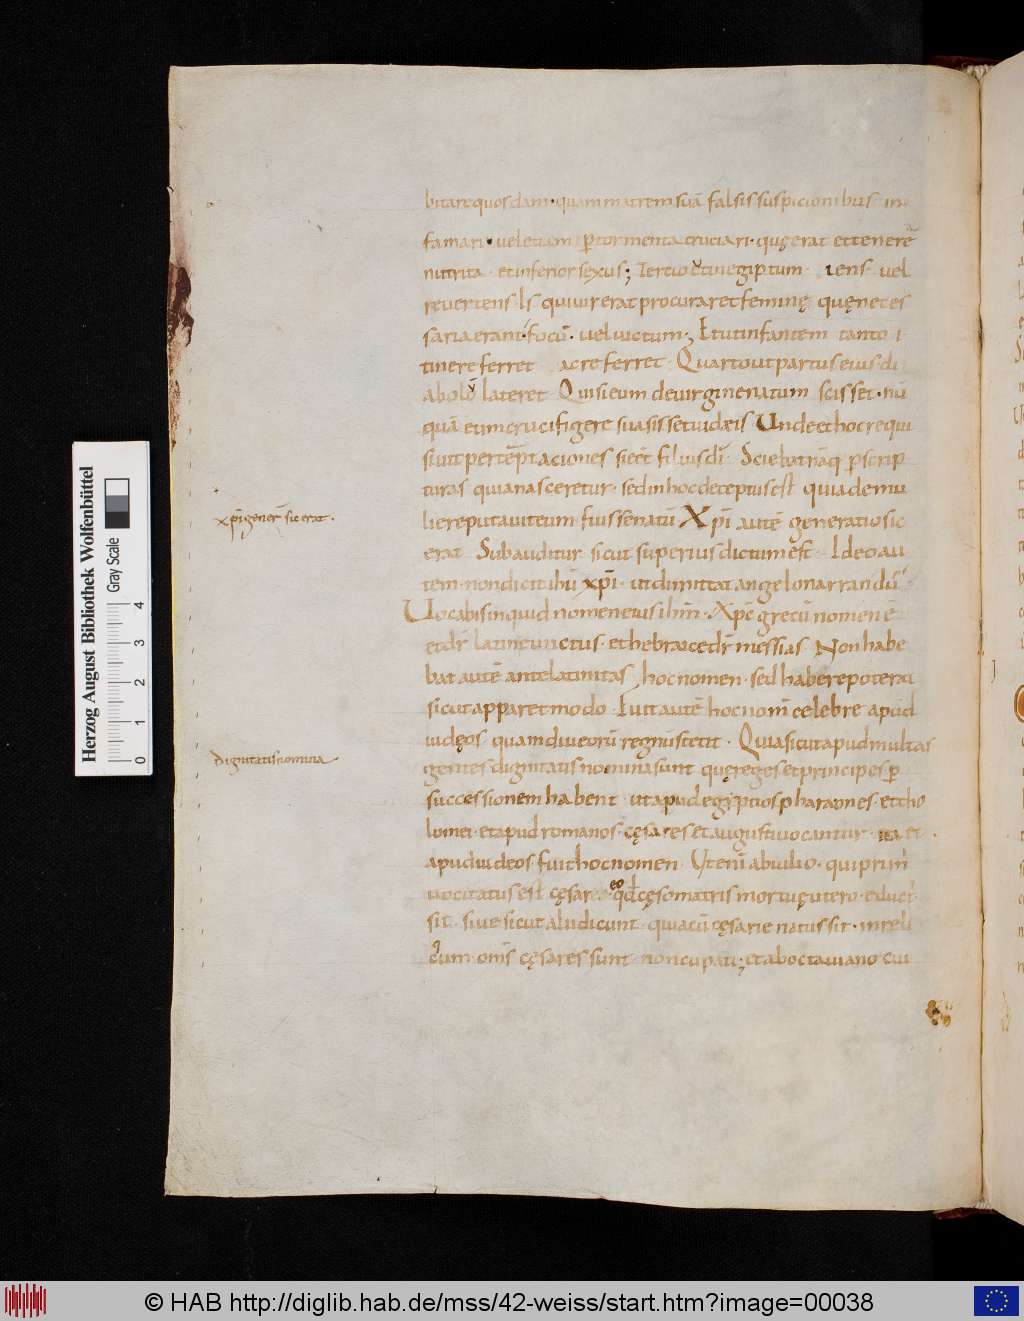 bitare quosdam · quam matrem suā falsis suspicionibus in
famari · vel etiam ptormenta cruciari · quę erat et tenerē
nutrita · et inferior sexus ; Tertio ut in egiptum · iens vel
revertens · Is qui vir erat procuraret feminę quę neces
saria erant · focū · vel victum ; Et ut infantem tanto i
tinere ferret ac referret · Quarto ut partus eius di
abolū lateret · Qui si eum de virgine natum scisset · nū
quā eum crucifigere suasisset iudęis Unde et hoc requi
sivit per temptaciones si eēt filius dī · Sciebat nāq pscrip
turas quia nasceretur · sed in hoc deceptus est quia de mu
liere putavit eum fuisse natū Xpī autē generatio sic
erat Subauditur sicut superius dictum est · Ideo au
tem · non dicit ihū xpī · ut dimittat angelo narrandū
Vocabis inquid nomen eius ihm̄ · Xpē grecū nomen ē
et dr̄ latine unctus · et hebraice dr̄ messias Non habe
bat autē ante latinitas hoc nomen · sed habere poterat
sicut apparet modo · Fuit autē hoc nom̄ celebre apud
iudęos quamdiu eorū regnū stetit · Quia sicut apud multas
gentes dignitatis nomina sunt quę reges et principes p
successionem habent · ut apud egyptios pharaones · et tho
lomei · et apud romanos · cęsares et augusti vocantur · ita et
apud iudeos fuit hoc nomen Vt enī ab iulio · qui prim̄
vocitatus est cęsar · eo qđ cęso matris mortuę utero · eductꝰ
sit · sive sicut alii dicunt · quia cū cęsarie natus sit · in reli
cum · om̄s cęsares sunt noncupati ; et ab octaviano cui
xpī gener̄ sic erat ·
Dignitatis nomina
Herzog August Bibliothek Wolfenbüttel
Gray Scale
0 1 2 3 4
© HAB http://diglib.hab.de/mss/42-weiss/start.htm?image=00038